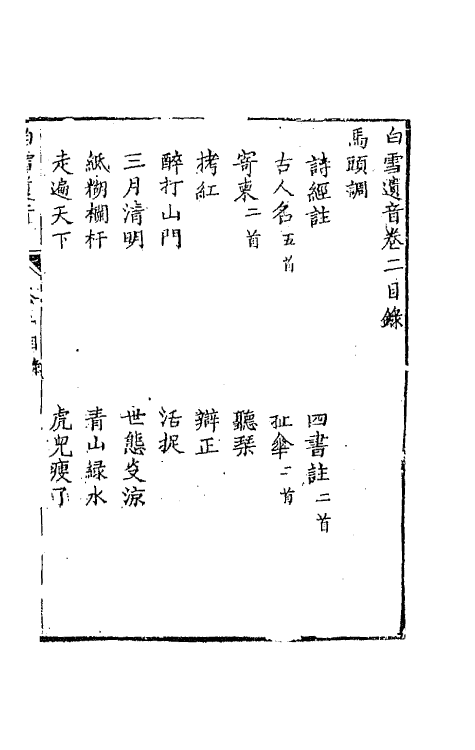 白雪遺音卷二目錄
馬頭調
詩經註
四書註二首
古人名五首
扯傘二首
寄柬二首
聽琹
拷紅
辯正
醉打山門
活捉
三月清明
世態炎涼
紙糊欄杆
青山綠水
走遍天下
虎兒瘦了
白雪遺音